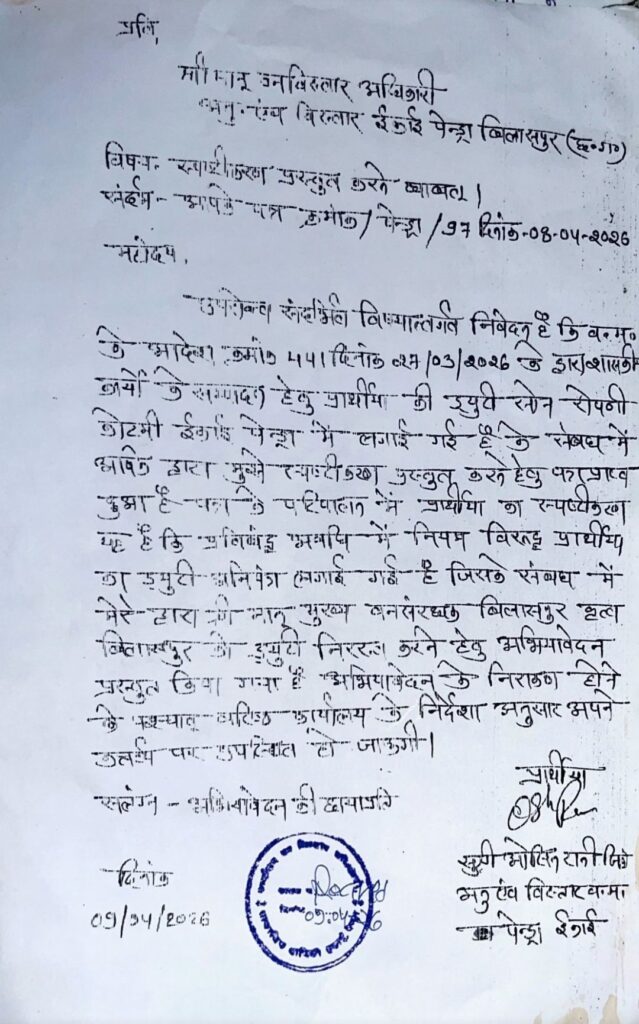 प्रति,
श्री मान् वनविस्तार अधिकारी
अनु. एवं विस्तार ईकाई पेन्ड्रा बिलासपुर (छ.ग.)
विषय- स्पष्टीकरण प्रस्तुत करने बाबत् ।
संदर्भ- आपके पत्र क्रमांक/ पेन्ड्रा /97 दिनांक-08-04-2026
महोदय,
उपरोक्त संदर्भित विषयान्तर्गत निवेदन है कि व.म.
के आदेश क्रमांक 441 दिनांक 27/03/2026 के द्वारा शासकी
कार्यो के सम्पादन हेतु प्रार्थीया की ड्युटी सोन रोपनी
कोटमी ईकाई पेन्ड्रा में लगाई गई है के संबध में
आपके द्वारा मुझसे स्पष्टीकरण प्रस्तुत करने हेतु पत्र प्राप्त
हुआ है पत्र के परिपालन में प्रार्थीया का स्पष्टीकरण
यह है कि प्रतिबंद्ध अवधि में नियम विरूद्ध प्रार्थीया
का ड्युटी लगाई गई है जिसके संबध में
मेरे द्वारा श्री मान् मुख्य वनसंरक्षक बिलासपुर वृत्त
बिलासपुर को ड्युटी निरस्त करने हेतु अभियावेदन
प्रस्तुत किया गया है अभियावेदन के निराकरण होने
के पश्चात् वरिष्ठ कार्यालय के निर्देशा अनुसार अपने
कर्तव्य पर उपस्थित हो जाऊगी।
प्रार्थीया
सलंग्न - अभियावेदन की छायाप्रति
सुश्री रानी
दिनांक
अनु एवं विस्तार व.म.
09/04/2026
09.04.26
पेन्ड्रा ईकाई